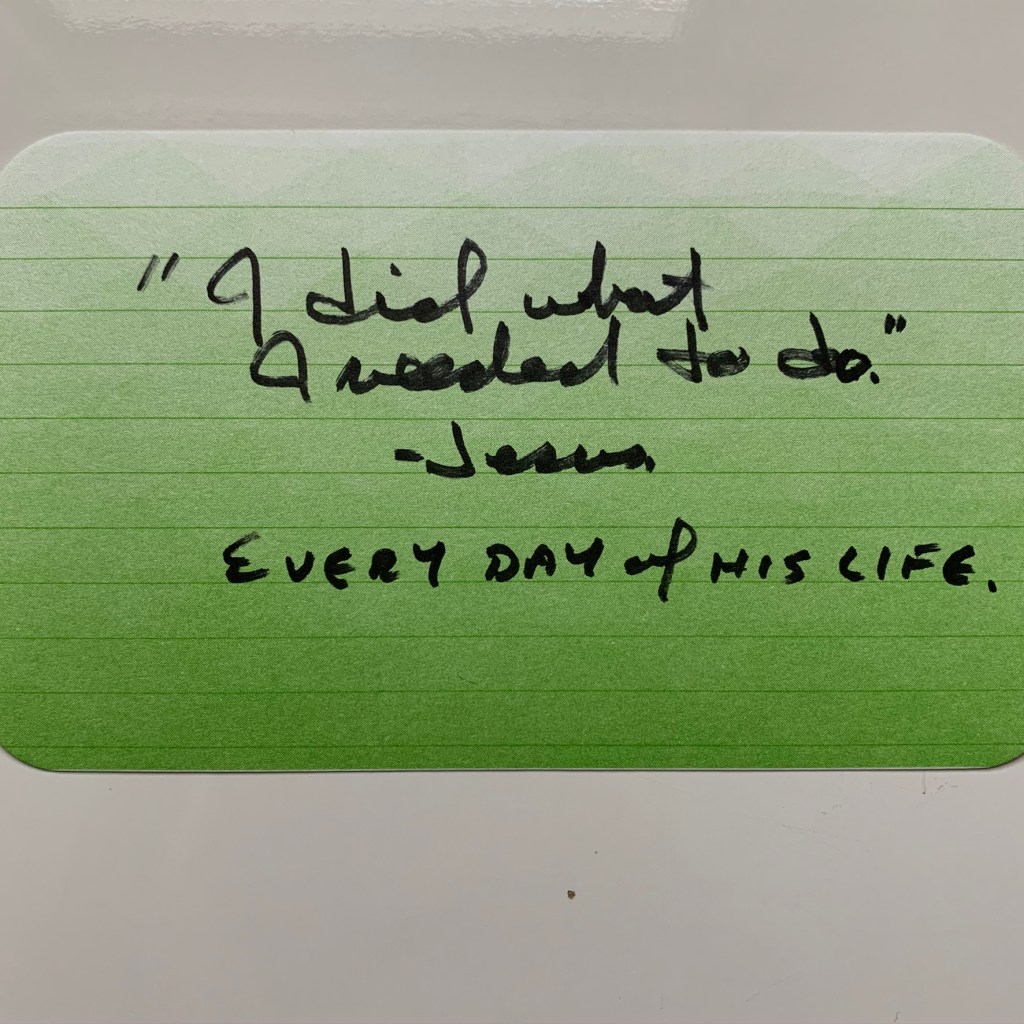 "I did what
I needed to do."
-Jesus,
EVERY DAY of HIS LIFE.